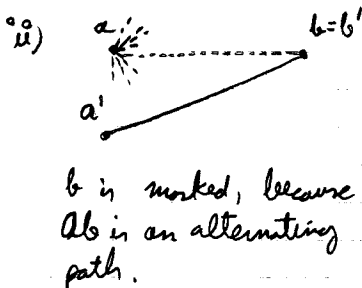 ii)
a
b=b'
a'
b is marked, because
ab is an alternating
path.